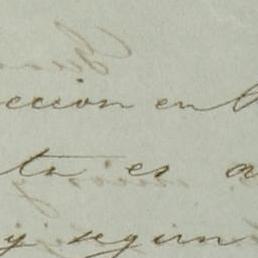 ccion en
ta es a
y segun